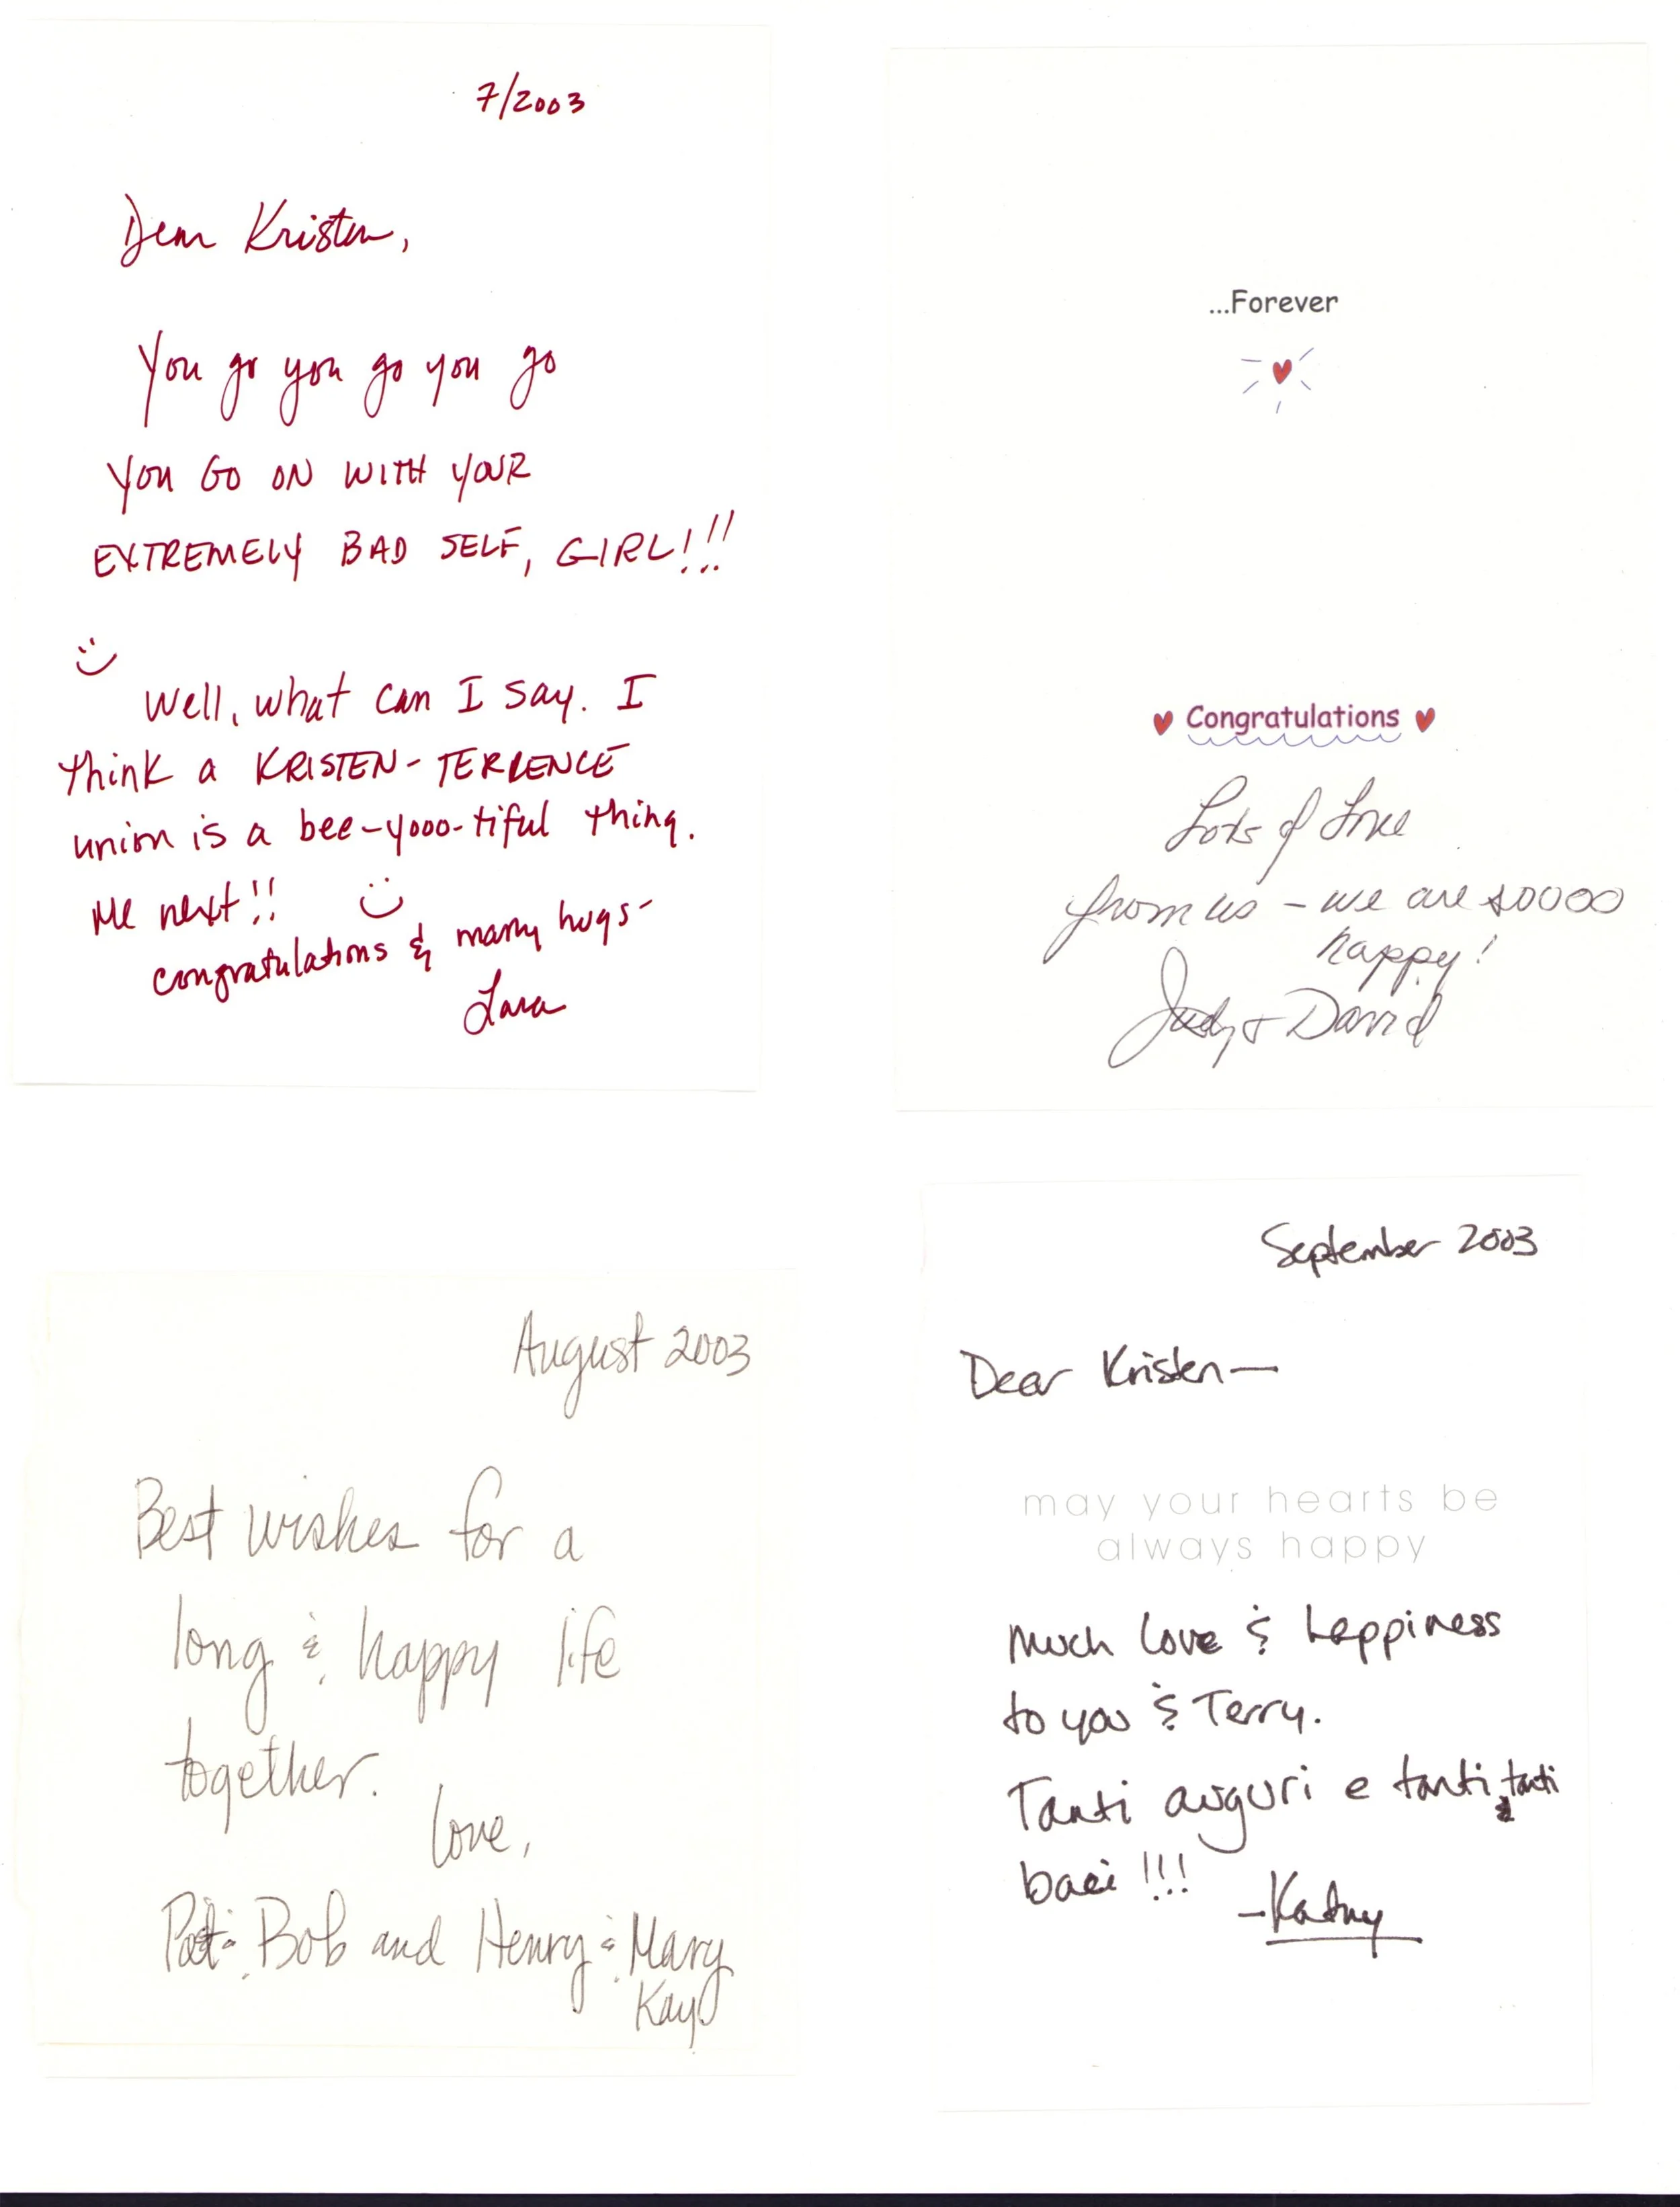 7/2003
Dear Kristen,
You go you go you go
YOU GO ON WITH YOUR
EXTREMELY BAD SELF, GIRL!!!
Well, what can I say. I
think a KRISTEN-TERRENCE
union is a bee-yooo-tiful thing.
Me next!!
congratulations & many hugs-
Lara
...Forever
Congratulations
Lots of Love
from us - we are soooo
happy!
Judy & David
August 2003
Best wishes for a
long & happy life
together.
Love,
Pat & Bob and Henry & Mary
Kay
September 2003
Dear Kristen—
may your hearts be
always happy
Much love & happiness
to you & Terry.
Tanti auguri e tanti, tanti
baci!!!
-Kathy